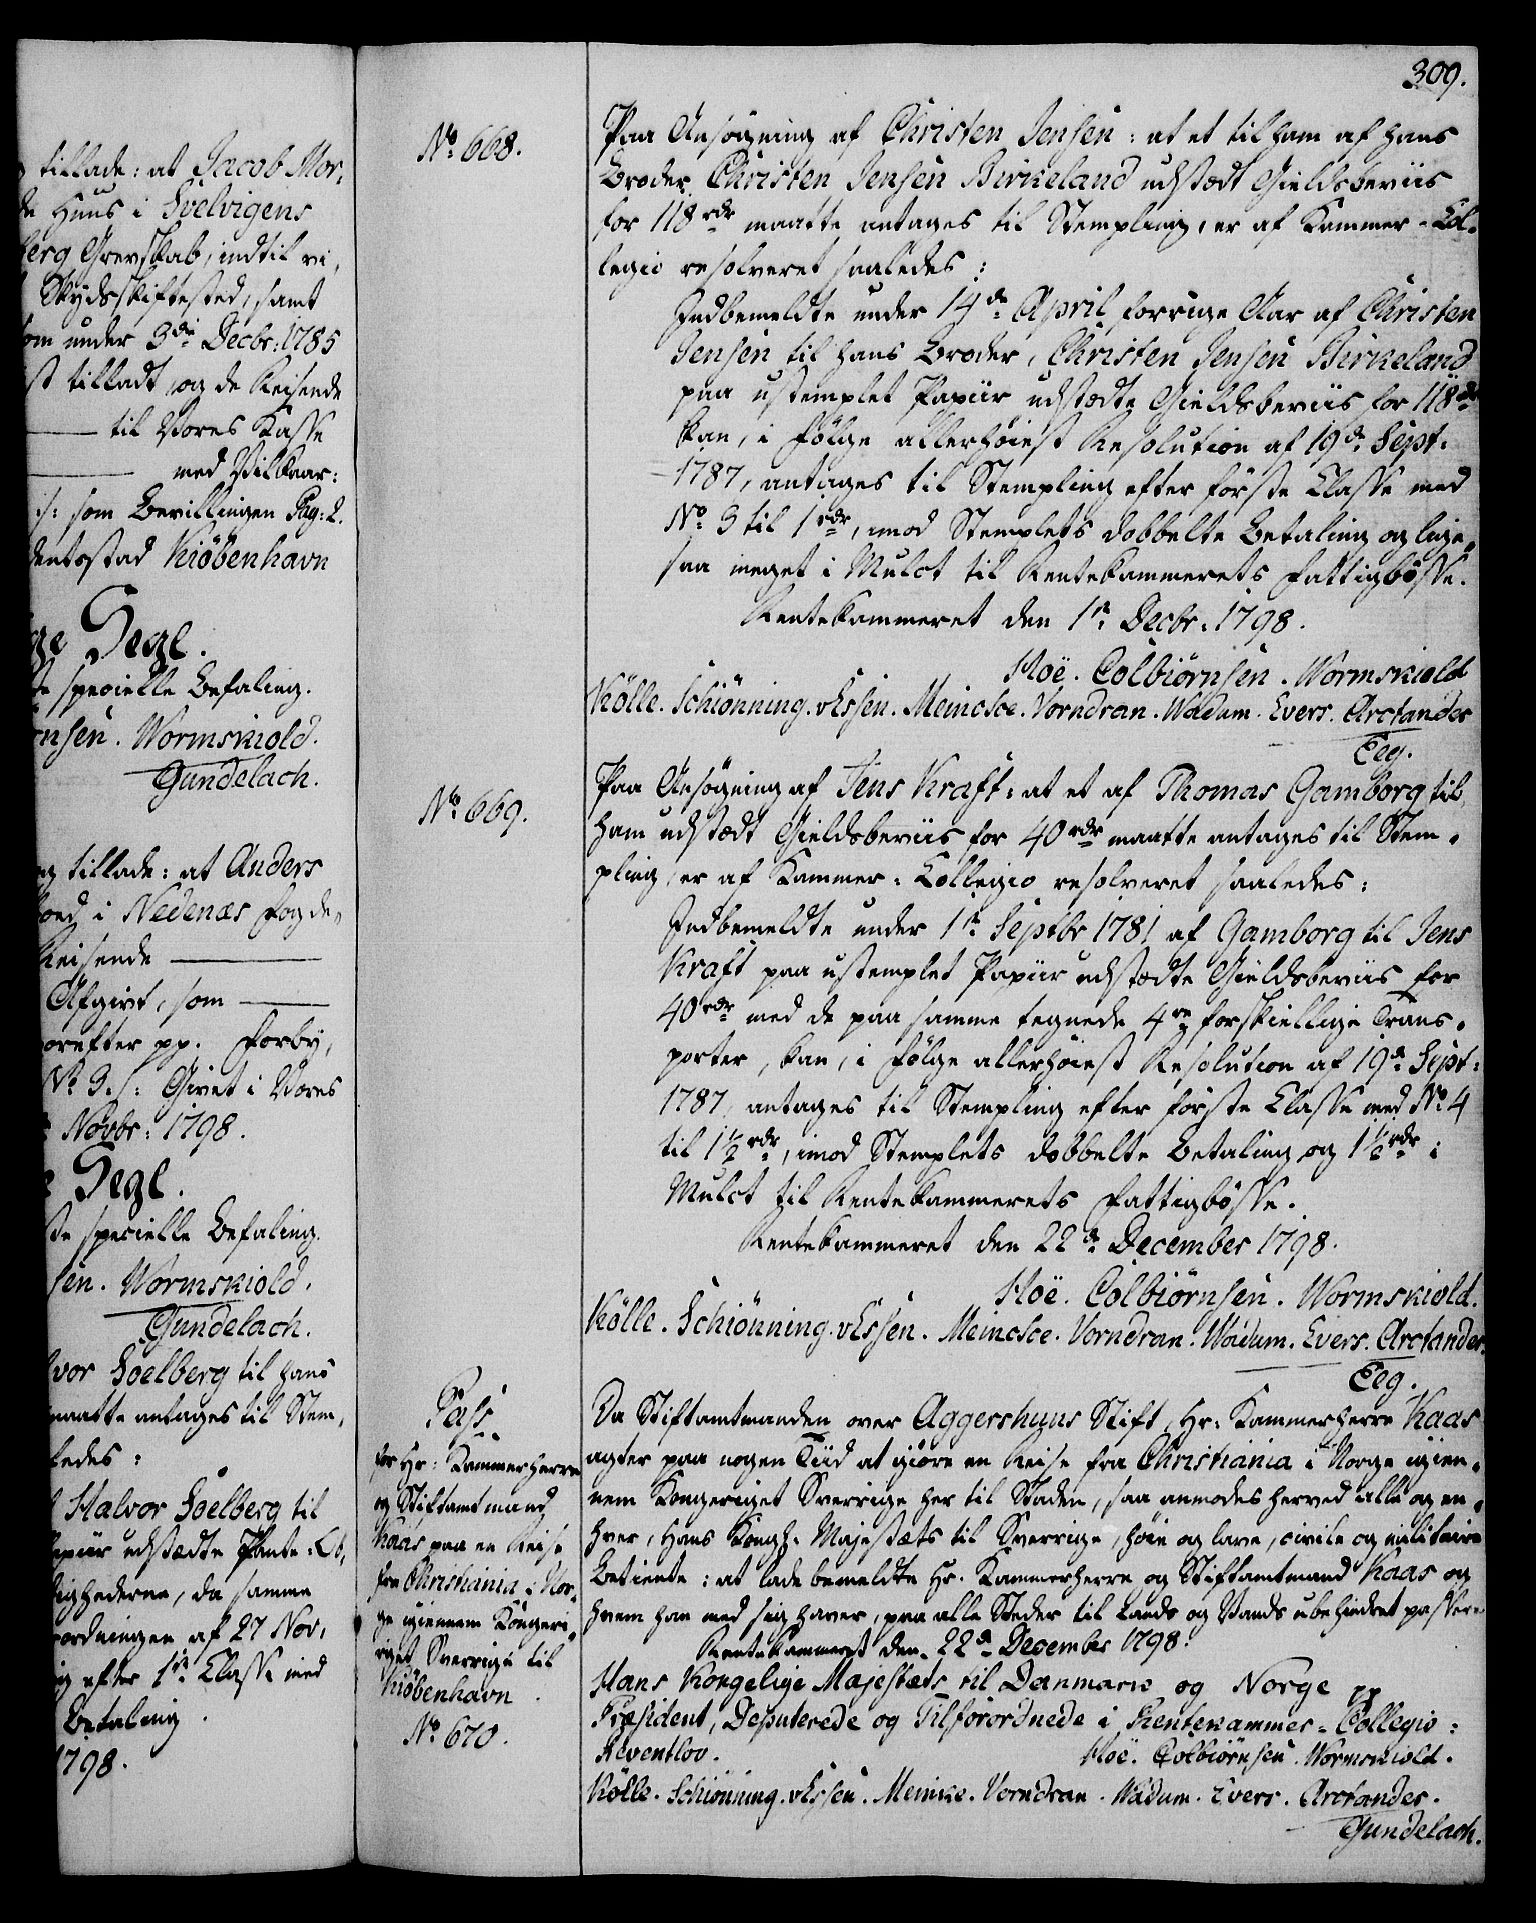 tillade: at Jacob Mor¬
de Huus i Svelvigens
berg Grevskab, indtil vi¬
Skydsskiftested, samt
som under 3die Decbr: 1785
ist tilladt og de Reisende
til Vores Kasse
med Vilkaar:
:/: som Bevillingen Pag: 2.
dentsstad Kiøbenhavn
ge Segl.
te specielle Befaling.
rnsen. Wormskiold.
Gundelach.
og tillade: at Anders
boed i Nedenæs Fogde¬
Reisende
Afgivt, som
orefter pp. Forby¬
No 3. /: Givet i Vores
Novbr: 1798.
e Segl.
te specielle Befaling.
sen. Wormskiold.
Gundelach.
lvor Soelberg til hans
maatte antages til Stem¬
ledes:
Halvor Soelberg til
Papiir udstædte Pante-Ob¬
lighederne, da samme
rordningen af 27 Nov.
ng efter 1ste Classe med
Betaling.
1798.
309.
No. 668.
Paa Ansøgning af Christen Jensen: at et til ham af hans
Broder Christen Jensen Birkeland udstædt Gieldsbeviis
for 118 rdr maatte antages til Stempling, er af Kammer-Col¬
legio resolveret saaledes:
Indbemeldte under 14de April forrige Aar af Christen
Jensen til hans Broder, Christen Jensen Birkeland
paa ustemplet Papiir udstædte Gieldsbeviis for 118 rdr
kan, i Følge allerhøiest Resolution af 19de Sept:
1787, antages til Stempling efter første Classe med
No. 3 til 1 rdr, imod Stemplets dobbelte Betaling og lige¬
saa meget i Mulct til Rentekammerets Fattigbøsse.
Rentekammeret den 1ste Decbr. 1798.
Hoë. Colbiørnsen. Wormskiold
Kölle. Schiønning. vEssen. Meincke. Vorndran. Wadum. Evers. Arctander
Eeg.
No. 669.
Paa Ansøgning af Jens Kraft: at et af Thomas Gamborg til
ham udstædt Gieldsbeviis for 40 rdr maatte antages til Stem¬
pling, er af Kammer-Collegio resolveret saaledes:
Indbemeldte under 1ste Septbr 1781 af Gamborg til Jens
Kraft paa ustemplet Papiir udstædte Gieldsbeviis for
40 rdr med de paa samme tegnede 4re forskiellige Trans¬
porter, kan, i Følge allerhøiest Resolution af 19de Sept:
1787, antages til Stempling efter første Classe med No. 4
til 1½ rdr, imod Stemplets dobbelte Betaling og 1½ rdr i
Mulct til Rentekammerets Fattigbøsse.
Rentekammeret den 22de December 1798.
Hoë. Colbiørnsen. Wormskiold.
Kölle. Schiønning. vEssen. Meincke. Vorndran. Wadum. Evers. Arctander.
Eeg.
Pass
for Hr: Kammerherre
og Stiftamtmand
Kaas paa en Reise
fra Christiania i Nor¬
ge igiennem Kongeri¬
get Sverrige til
Kiøbenhavn.
No. 670.
Da Stiftamtmanden over Aggershuus Stift, Hr: Kammerherre Kaas
agter paa nogen Tiid at giøre en Reise fra Christiania i Norge igien¬
nem Kongeriget Sverrige her til Staden, saa anmodes herved alle og en¬
hver, Hans Kongl. Majestæts til Sverrige, høie og lave, civile og militaire
Betiente: at lade bemeldte Hr. Kammerherre og Stiftamtmand Kaas og
hvem han med sig haver, paa alle Steder til Lands og Vands ubehindret passere
Rentekammeret den 22de December 1798.
Hans Kongelige Majestæts til Danmark og Norge pp
Præsident, Deputerede og Tilforordnede i Rentekammer-Collegio:
Reventlov. Hoë. Colbiørnsen. Wormskiold.
Kölle. Schiønning. vEssen. Meincke. Vorndran. Wadum. Evers. Arctander.
Gundelach.